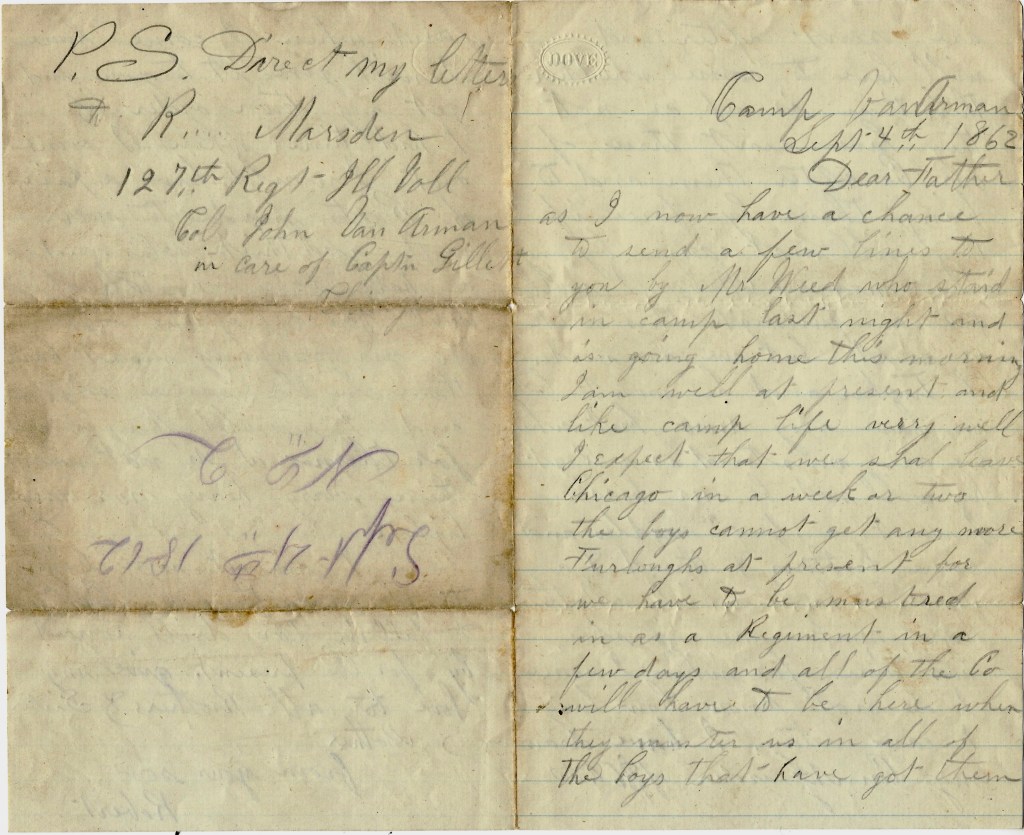 P. S. Direct my letters
to R.... Marsden
127th Regt Ill Voll
Col John Van Arman
in care of Captn Gillett
No 2
Sept 4th 1862
DOVE
Camp VanArman
Sept 4th 1862
Dear Father
as I now have a chance
to send a few lines to
you by Mr Weed who staid
in camp last night and
is going home this morning
I am well at present and
like camp life verry well
I expect that we shal leave
Chicago in a week or two
the boys cannot get any more
Furloughs at present for
we have to be mustered
in as a Regiment in a
few days and all of the Co
will have to be here when
they muster us in all of
the boys that have got them